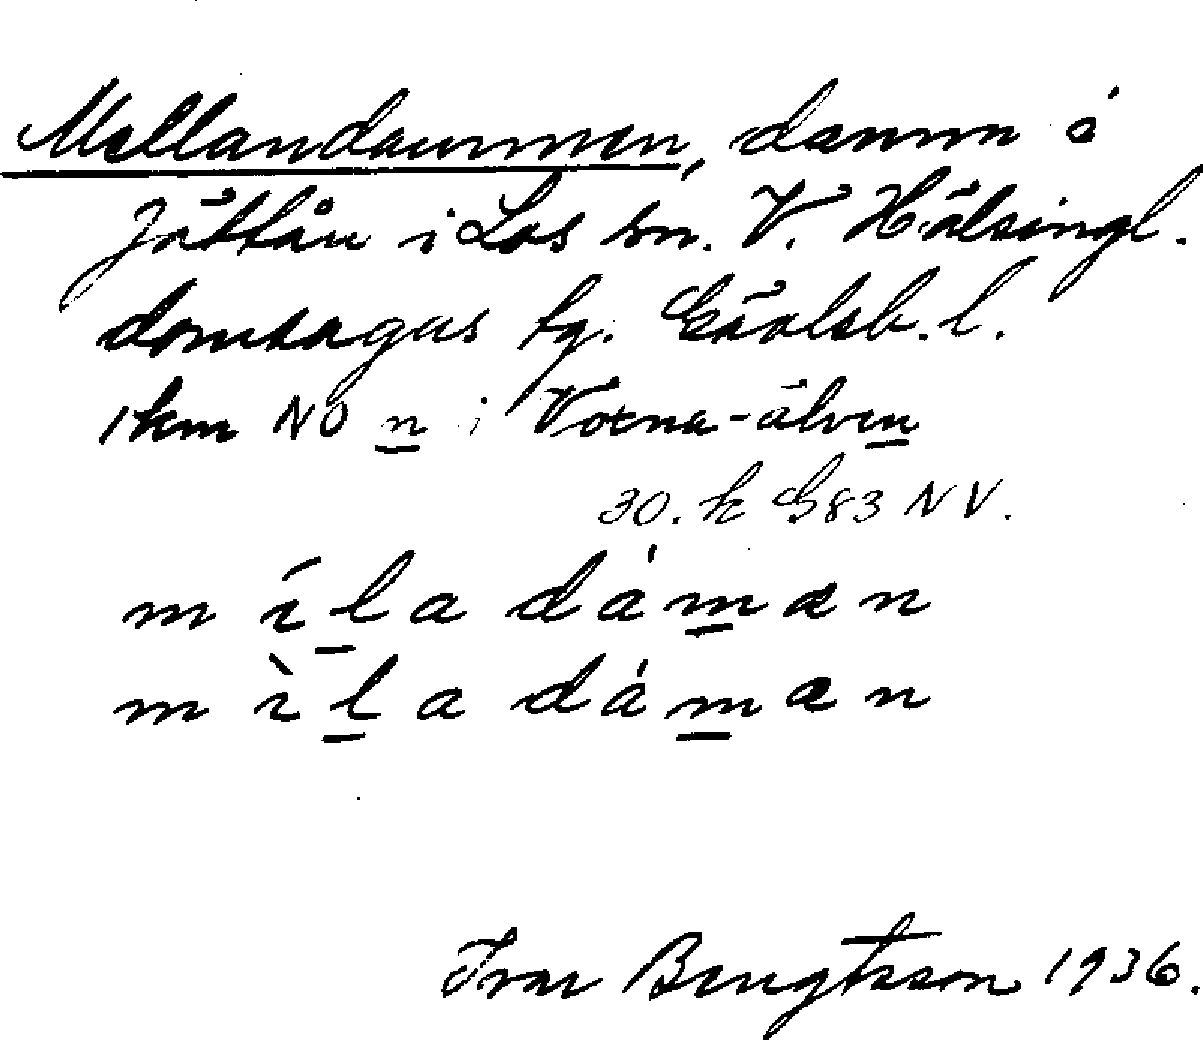 Mellandammen, damm i
Jättån i Los sn. V. Hälsingl.
domsagas tg. Gävleb. l.
1 km NO n i Voxna-älven
30. k G83 NV.
m í l a dá m a n
m ì l a dá m a n
Ivar Bengtsson 1936.